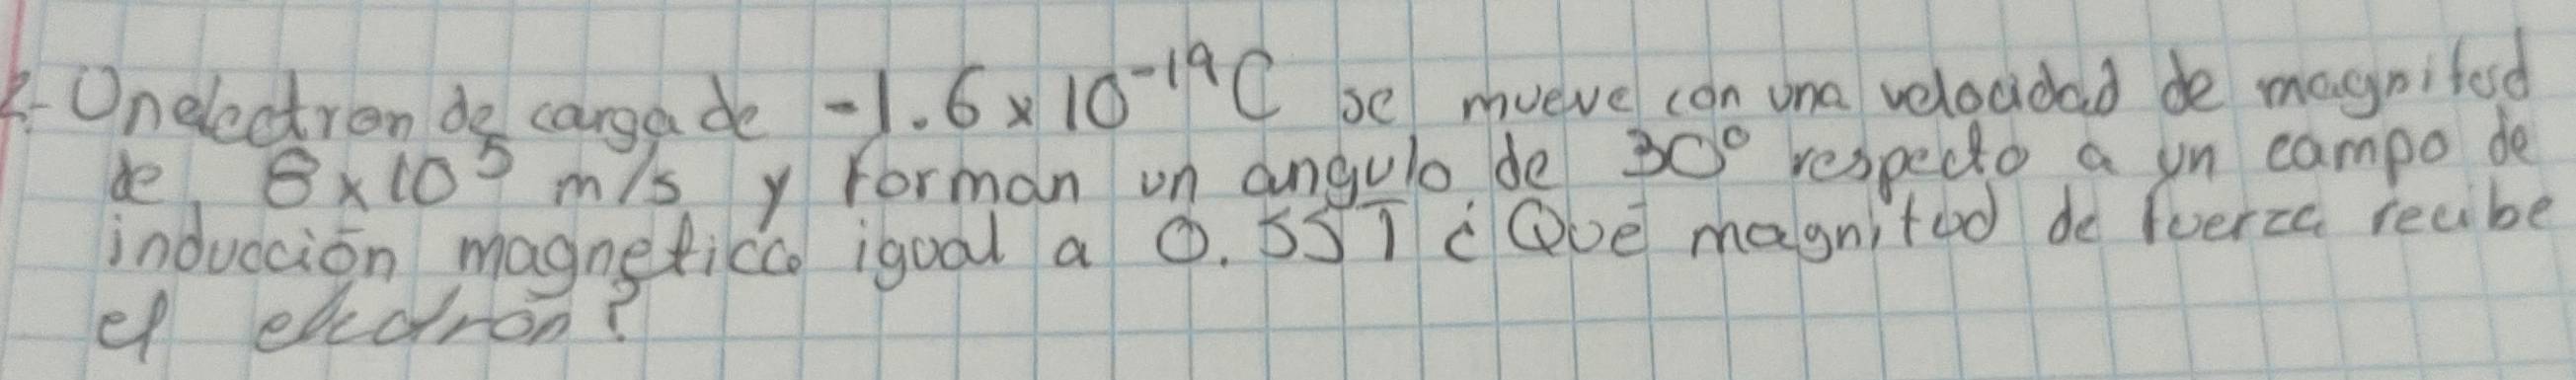 2.- Un electron de carga de -1.6 x 10⁻¹⁹ C se mueve con una velocidad de magnitud
de, 8 x 10⁵ m/s y forman un angulo de 30° respecto a un campo de
inducción magnetica igual a 0.55T ¿Qué magnitud de fuerza recibe
el electrón?